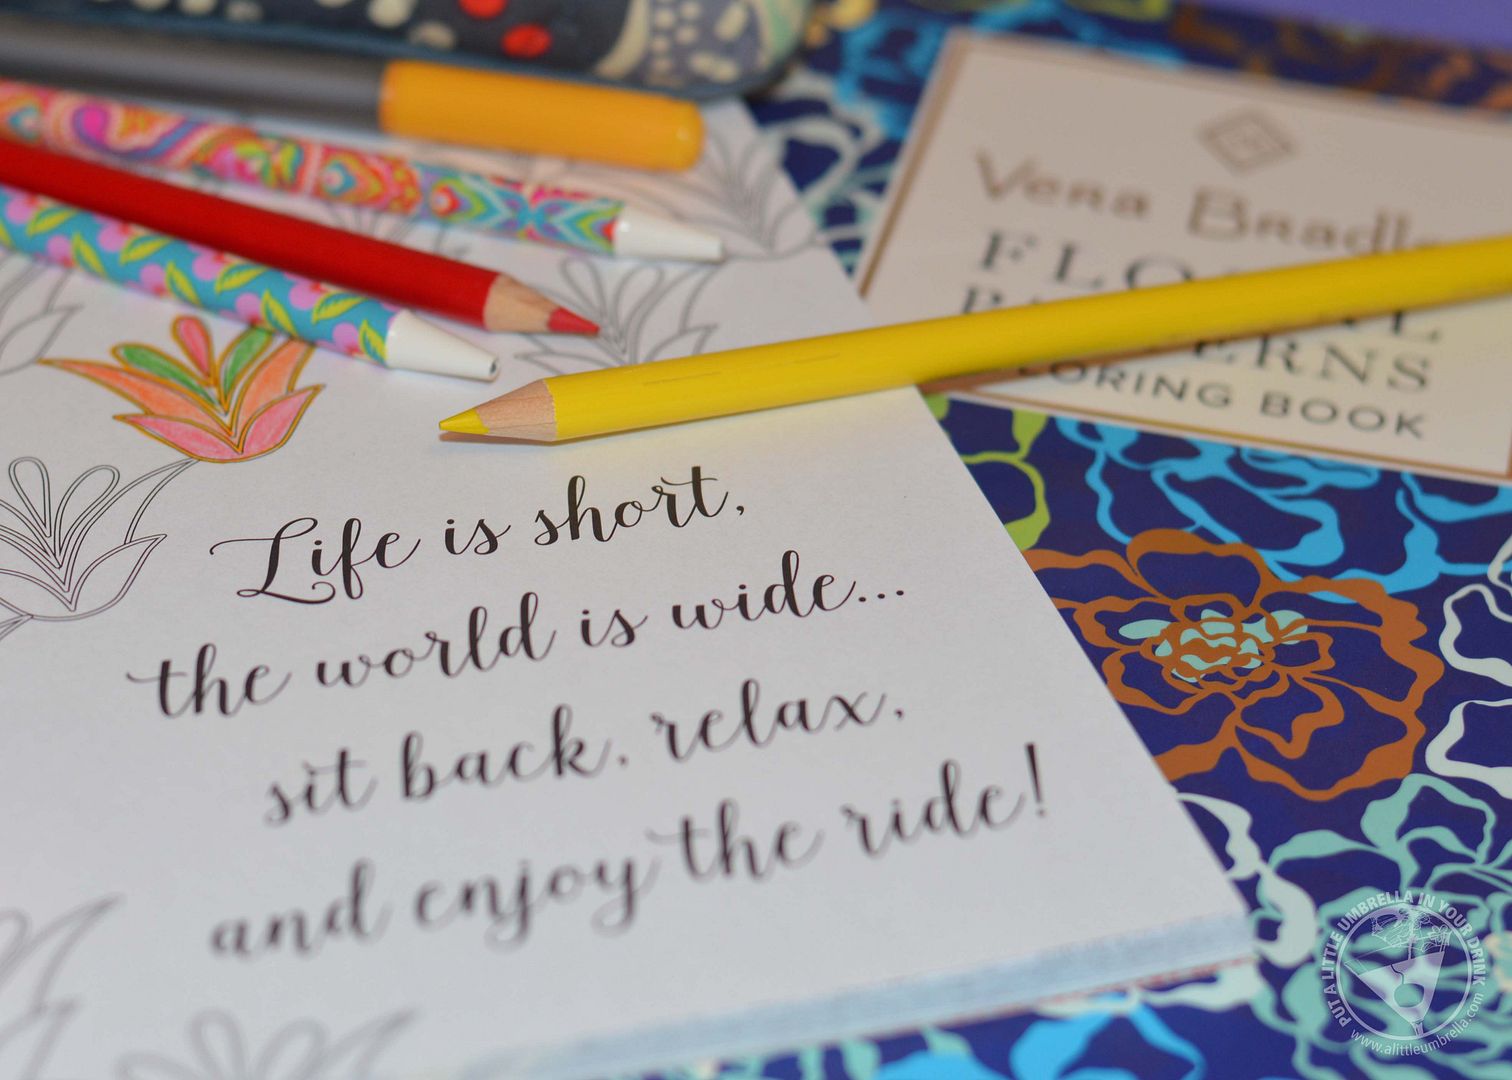 Vera Bradle
FLORAL
PATTERNS
COLORING BOOK
Life is short,
the world is wide...
sit back, relax,
and enjoy the ride!
PUT A LITTLE UMBRELLA IN YOUR DRINK
www.alittleumbrella.com